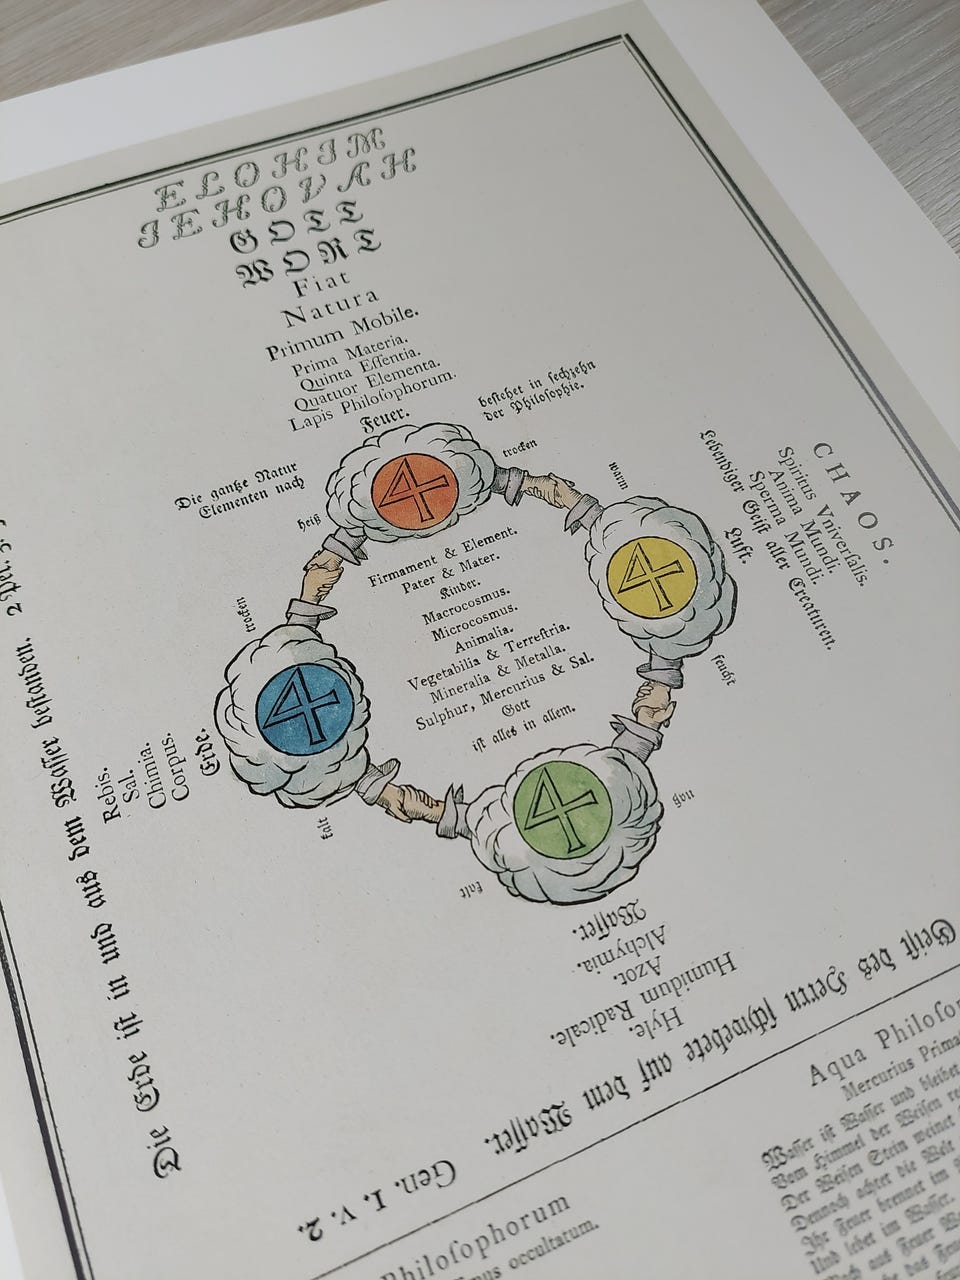 ELOHIM
JEHOVAH
GOTT
WORT
Fiat
Natura
Primum Mobile.
Prima Materia.
Quinta Eſſentia.
Quatuor Elementa.
Lapis Philoſophorum.
Feuer.
Die gantze Natur
Elementen nach
beſtehet in ſechzehn
der Philoſophie.
heiß
trocken
4
warm
CHAOS.
Spiritus Vniverſalis.
Anima Mundi.
Sperma Mundi.
Lebendiger Geiſt aller Creaturen.
Luft.
4
feucht
Firmament & Element.
Pater & Mater.
Kinder.
Macrocosmus.
Microcosmus.
Animalia.
Vegetabilia & Terreſtria.
Mineralia & Metalla.
Sulphur, Mercurius & Sal.
Gott
iſt alles in allem.
trocken
4
Rebis.
Sal.
Chimia.
Corpus.
Erde.
kalt
4
naß
kalt
Waſſer.
Alchymia.
Azot.
Humidum Radicale.
Hyle.
Die Erde iſt in und auß dem Waſſer beſtanden. 2 Pet. 3.
Geiſt deß Herrn ſchwebete auf dem Waſſer. Gen. I. v. 2.
Philoſophorum
occultatum.
Aqua
Mercurius
Waſſer iſt Waſſer und bleibet
Vom Himmel der Weiſen
Der Weiſen Stein weinet
Dennoch achtet die Welt
Ihr Feuer brennet im
Und lebet im Waſſer.
auß Feuer
das